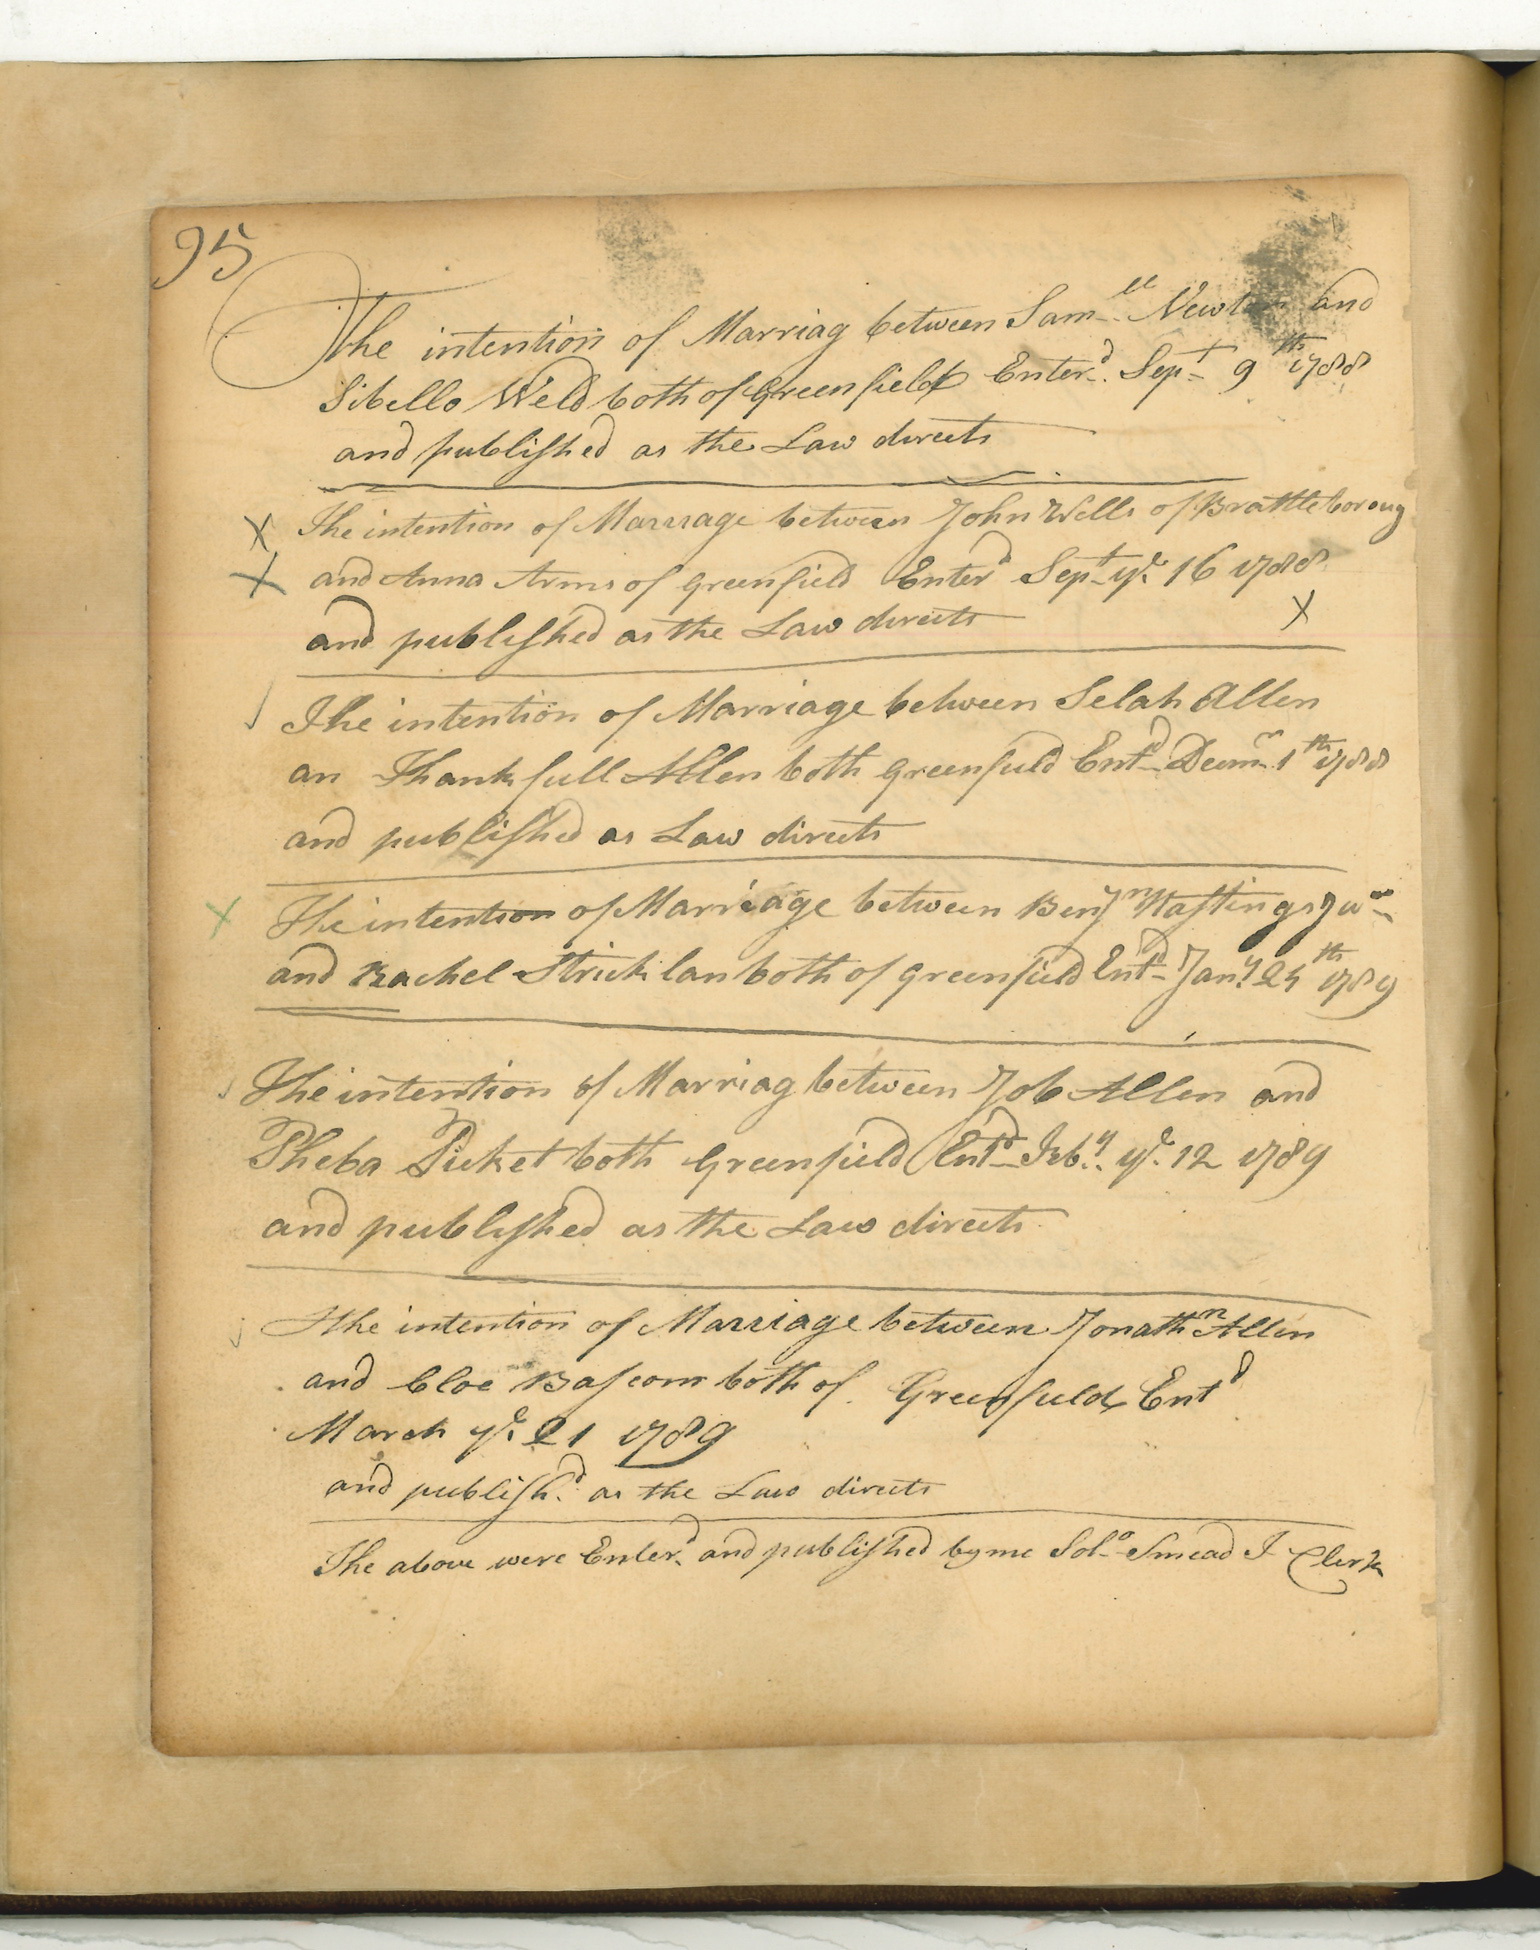 95
The intention of Marriag between Samll Newton and
Sibello Weld both of Greenfield Enterd Sept 9th 1788
and published as the Law directs
X The intention of Marriage between John Wells of Brattleboroug
X and Anna Arms of greenfield Enterd Sept ye 16 1788
and published as the Law directs X
The intention of Marriage between Selah Allen
an Thankfull Allen both greenfield Entd Decmr 1th 1788
and published as Law directs
X The intention of Marriage between Benjn Hastings Jur
and Rachel Stricklan both of greenfield Entd Jany 24th 1789
The intention of Marriag between Job Allen and
Pheba Picket both Greenfield Entd Feby ye 12 1789
and published as the Law directs
The intention of Marriage between Jonathn Allen
and Cloe Bascom both of Greenfield Entd
March ye 21 1789
and publishd as the Law directs
The above were Enterd and published by me Solo Smead T Clerk